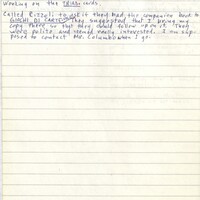 Working on the TRIBBI cards.
Called Rizzoli to see if they had the companion book to
GIOCHI DI CARTE. They suggested that I bring my
copy there so that they could follow up on it. They
were polite and seemed really interested. I am sup-
posed to contact Mr. Columbo when I go.